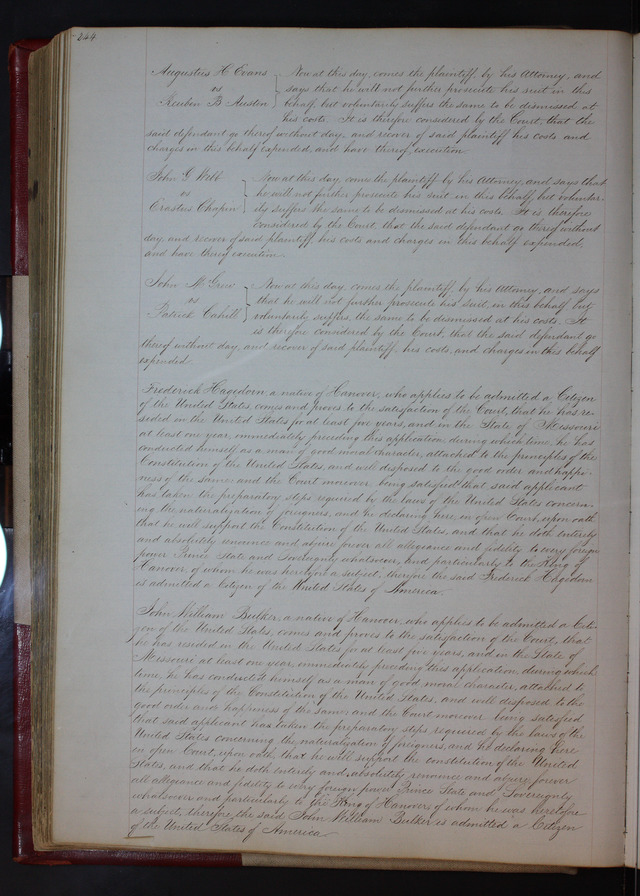 244
Augustus H Evans
vs
Reuben B Austen
Now at this day, comes the plaintiff, by his Attorney, and
says that he will not further prosecute his suit in this
behalf, but voluntarily suffers the same to be dismissed at
his costs. It is therefore considered by the Court, that the
said defendant go thereof without day, and recover of said plaintiff his costs and
charges in this behalf expended, and have thereof, execution.
John G Webb
vs
Erastus Chapin
Now at this day, come the plaintiff by his Attorney, and says that
he will not further prosecute his suit in this behalf, but voluntar-
ily suffers the same to be dismissed at his costs. It is therefore
considered by the Court that the said defendant go thereof without
day, and recover of said plaintiff, his costs and charges in this behalf expended,
and have thereof execution.
John McGrew
vs
Patrick Cahill
Now at this day, comes the plaintiff, by his Attorney, and says
that he will not further prosecute his suit, in this behalf but
voluntarily suffers, the same to be dismissed at his costs. It
is therefore considered by the Court, that the said defendant go
thereof without day, and recover of said plaintiff, his costs, and charges in this behalf
expended.
Frederick Hagedorn, a native of Hanover, who applies to be admitted a Citizen
of the United States, comes and proves to the satisfaction of the Court, that he has re-
sided in the United States for at least five years, and in the State of Missouri
at least one year, immediately preceding this application, during which time, he has
conducted himself as a man of good moral character, attached to the principles of the
Constitution of the United States, and well disposed to the good order and happi-
ness of the same: and the Court moreover being satisfied that said applicant
has taken the preparatory steps required by the laws of the United States concern-
ing the naturalization of foreigners, and he declaring here, in open Court, upon oath,
that he will support the Constitution of the United States, and that he doth entirely
and absolutely renounce and abjure forever all allegiance and fidelity to every foreign
power Prince State and Sovereignty whatsoever, and particularly to the King of
Hanover, of whom he was heretofore a subject, therefore the said Frederick Hagedorn
is admitted a Citizen of the United States of America.
John William Bulker, a native of Hanover, who applies to be admitted a Citi-
zen of the United States, comes and proves to the satisfaction of the Court, that
he has resided in the United States for at least five years, and in the State of
Missouri at least one year, immediately preceding this application, during which
time, he has conducted himself as a man of good moral character, attached to
the principles of the Constitution of the United States, and well disposed to the
good order and happiness of the same: and the Court moreover being satisfied
that said applicant has taken the preparatory steps required by the laws of the
United States concerning the naturalization of foreigners, and he declaring here
in open Court, upon oath, that he will support the constitution of the United
States, and that he doth entirely and absolutely renounce and abjure forever
all allegiance and fidelity to every foreign power Prince State and Sovereignty
whatsoever and particularly to the King of Hanover, of whom he was heretofore
a subject, therefore, the said John William Bulker is admitted a Citizen
of the United States of America.